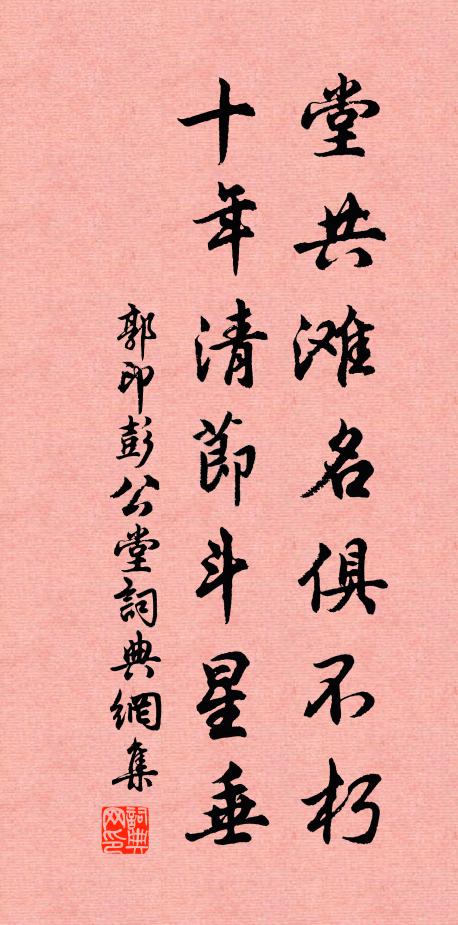 堂共滩名俱不朽
十年清節斗星垂
郭印彭公堂詞典網集
詞典网印